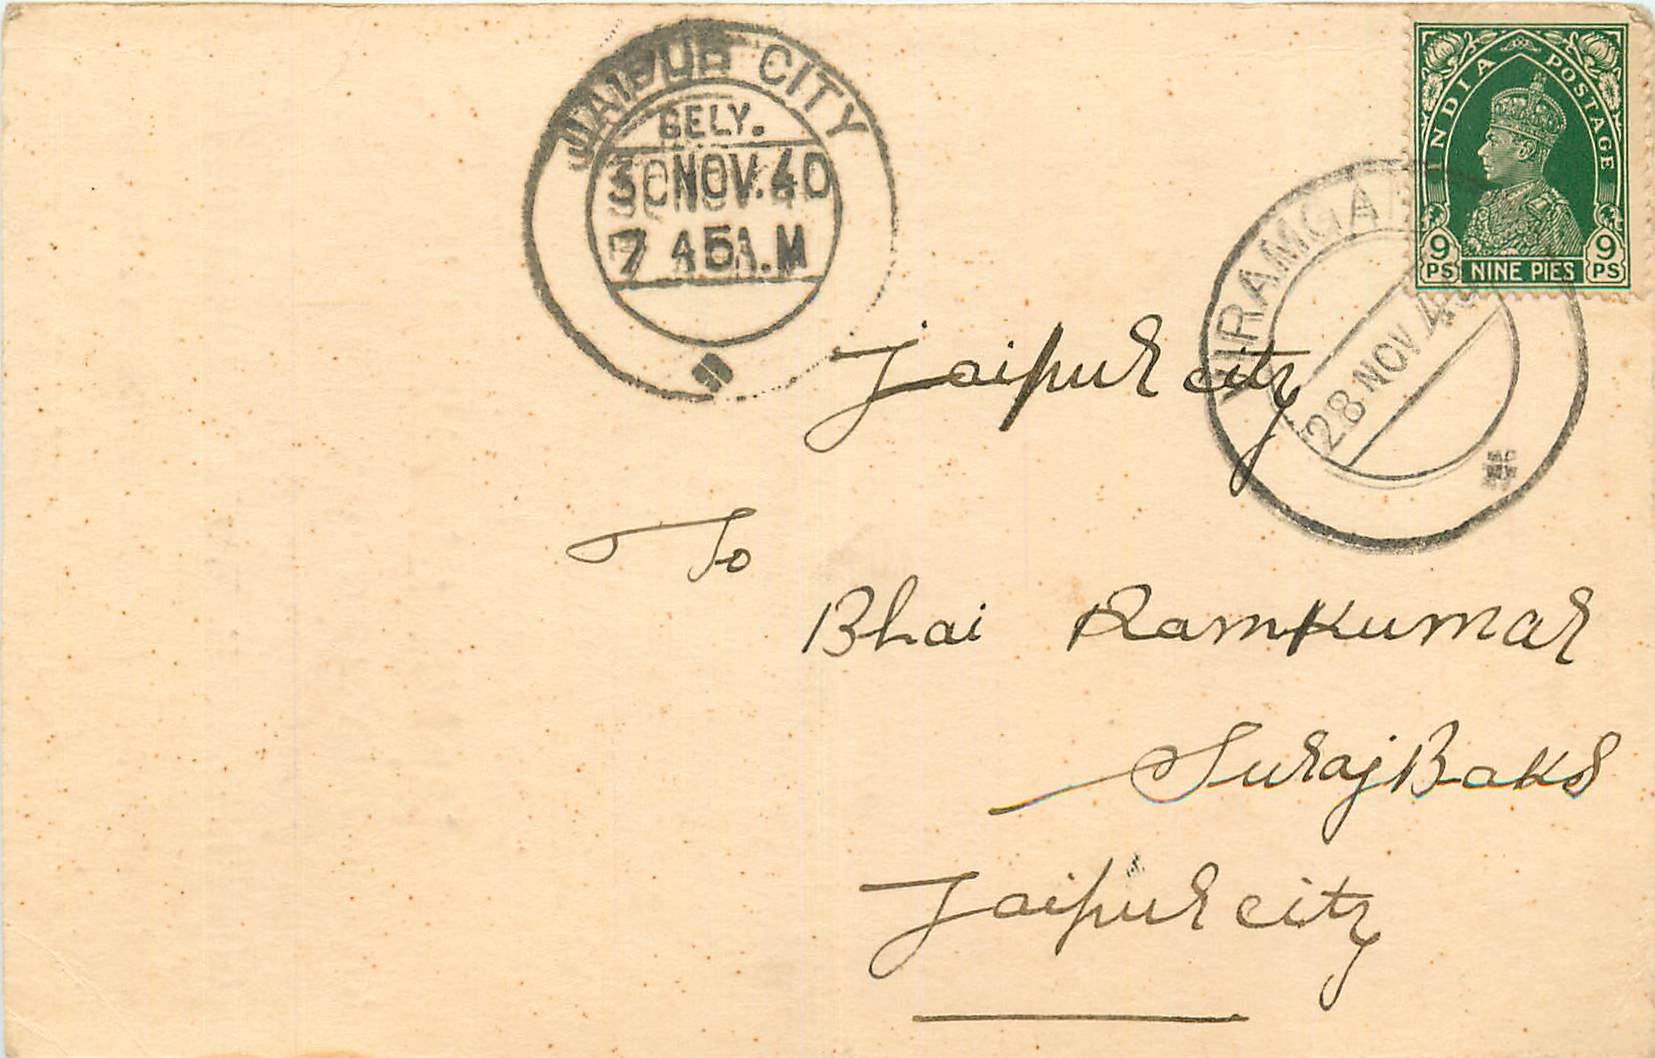 JAIPUR CITY
DELY.
30 NOV. 40
7 45 A.M
INDIA POSTAGE
9 9
PS NINE PIES PS
VIRAMGA
28 NOV 40
Jaipur city
To
Bhai Ramkumar
SurajBaks
Jaipur city